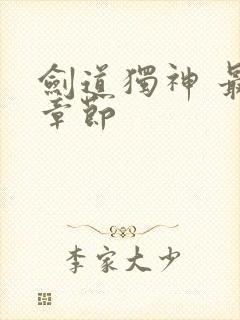 劍道獨神 最
章節
李家大少